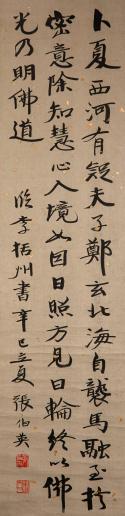 卜夏西河有疑夫子鄭玄北海自襲馬融至於
密意除知慧心入境如因日照方見日輪終以佛
光乃明佛道
臨李括州書辛巳立夏張伯英